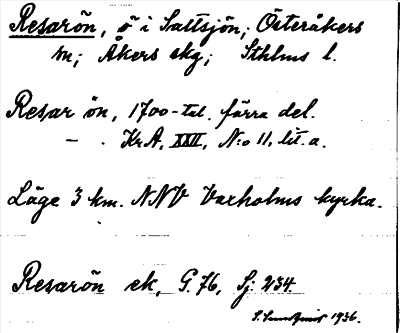 Resarön, ö i Saltsjön; Österåkers
sn; Åkers skg; Sthlms l.
Resar ön, 1700-tal.förra del.
— . Kr.A. XXII, N:o 11, lit. a.
Läge 3 km. NNV Vaxholms kyrka.
Resarön ek, G. 76, Sj: 234.
1936.